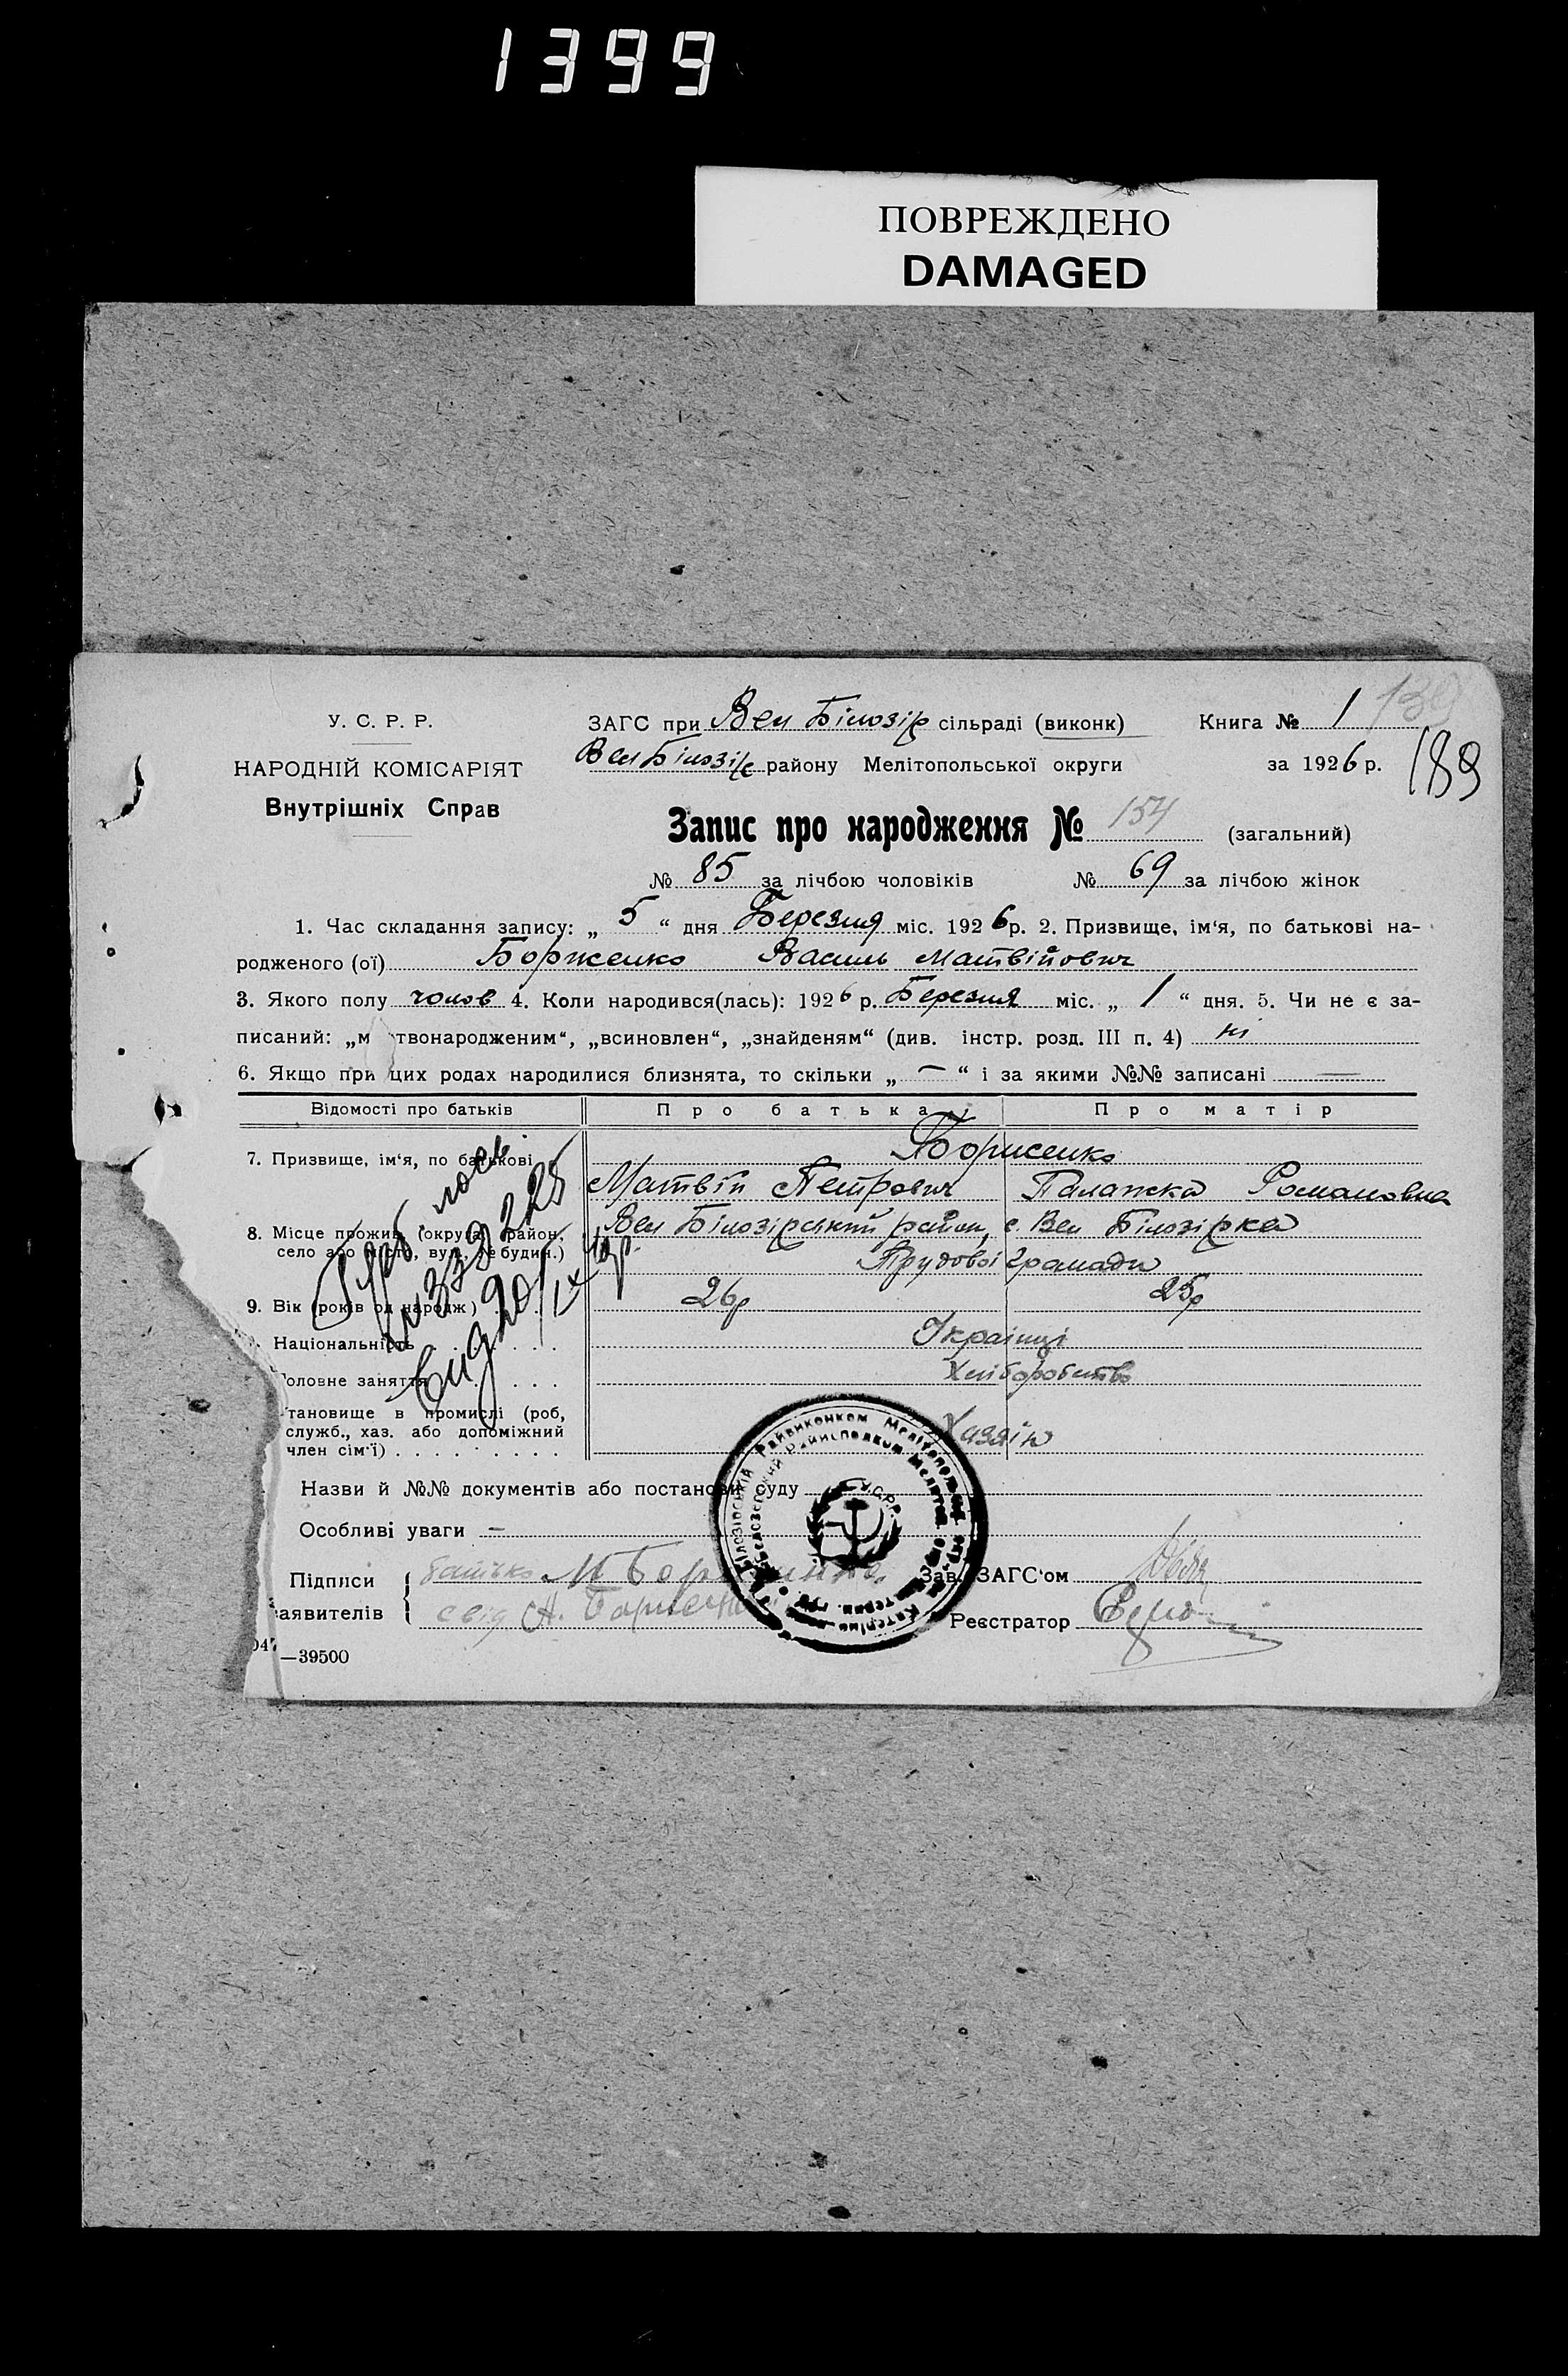 1399
ПОВРЕЖДЕНО
DAMAGED
У. С. Р. Р.
НАРОДНІЙ КОМІСАРІЯТ
Внутрішніх Справ
ЗАГС при Вел Білозір сільраді (виконк) Книга № 1 139
Вел Білозір району Мелітопольської округи за 1926 р. 189
Запис про народження № 154 (загальний)
№ 85 за лічбою чоловіків № 69 за лічбою жінок
1. Час складання запису: „ 5 “ дня Березня міс. 1926 р. 2. Призвище, ім‘я, по батькові на-
родженого (ої) Борженко Василь Матвійович
3. Якого полу чолов 4. Коли народився(лась): 1926 р. Березня міс. „ 1 “ дня. 5. Чи не є за-
писаний: „м твонародженим“, „всиновлен“, „знайденям“ (див. інстр. розд. III п. 4) ні
6. Якщо при цих родах народилися близнята, то скільки „ — “ і за якими №№ записані —
Відомості про батьків Про батька Про матір
7. Призвище, ім‘я, по батькові Борисенко
Матвій Петрович Палажка Романовна
8. Місце прожив. (округа, район, Вел Білозірський район, с. Вел Білозірка
село або місто, вул., № будин.) Трудової громади
9. Вік (років од народж) 26р 25р
Національність Українці
Головне заняття Хліборобство
тановище в промислі (роб,
служб., хаз. або допоміжний
член сім‘ї) Хазяїн
Назви й №№ документів або постанови суду
Особливі уваги —
Підписи батько М Бор
аявителів свід А.
Зав. ЗАГС‘ом
Реєстратор
047 —39500
У.С.Р.Р.